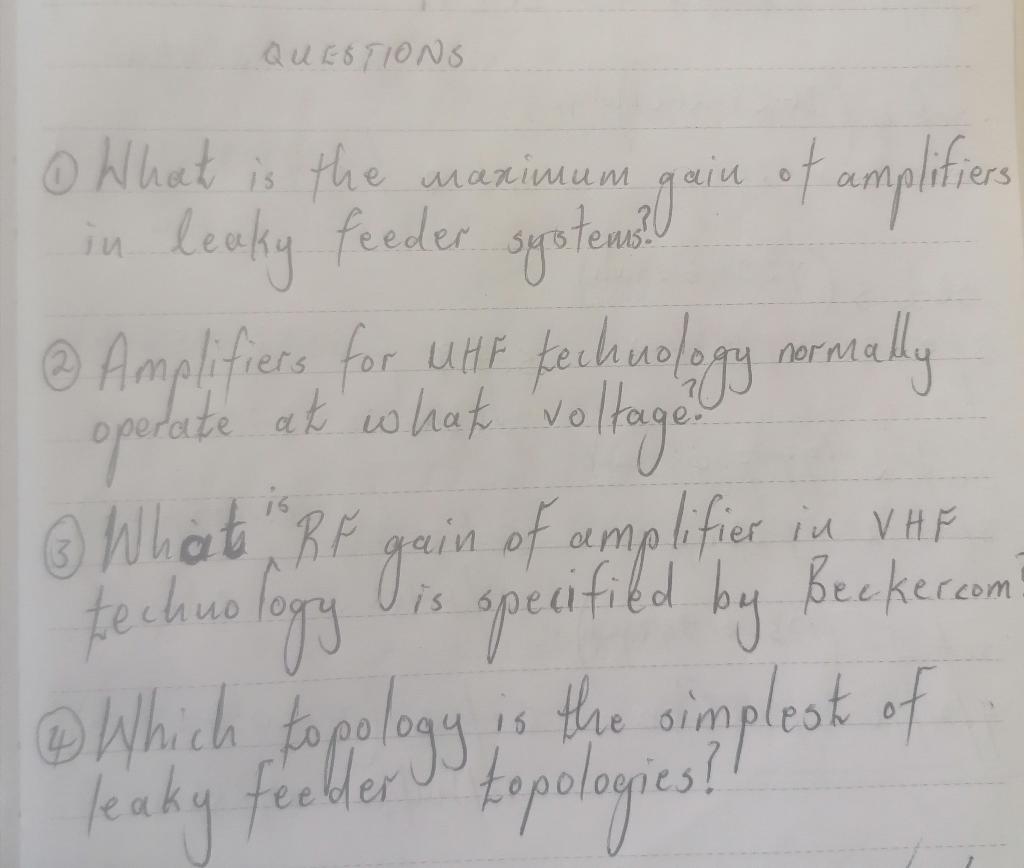 QUESTIONS
① What is the maximum gain of amplifiers
in leaky feeder systems?
② Amplifiers for UHF technology normally
operate at what voltage?
③ What is RF gain of amplifier in VHF
technology is specified by Beckercom?
④ Which topology is the simplest of
leaky feeder topologies?